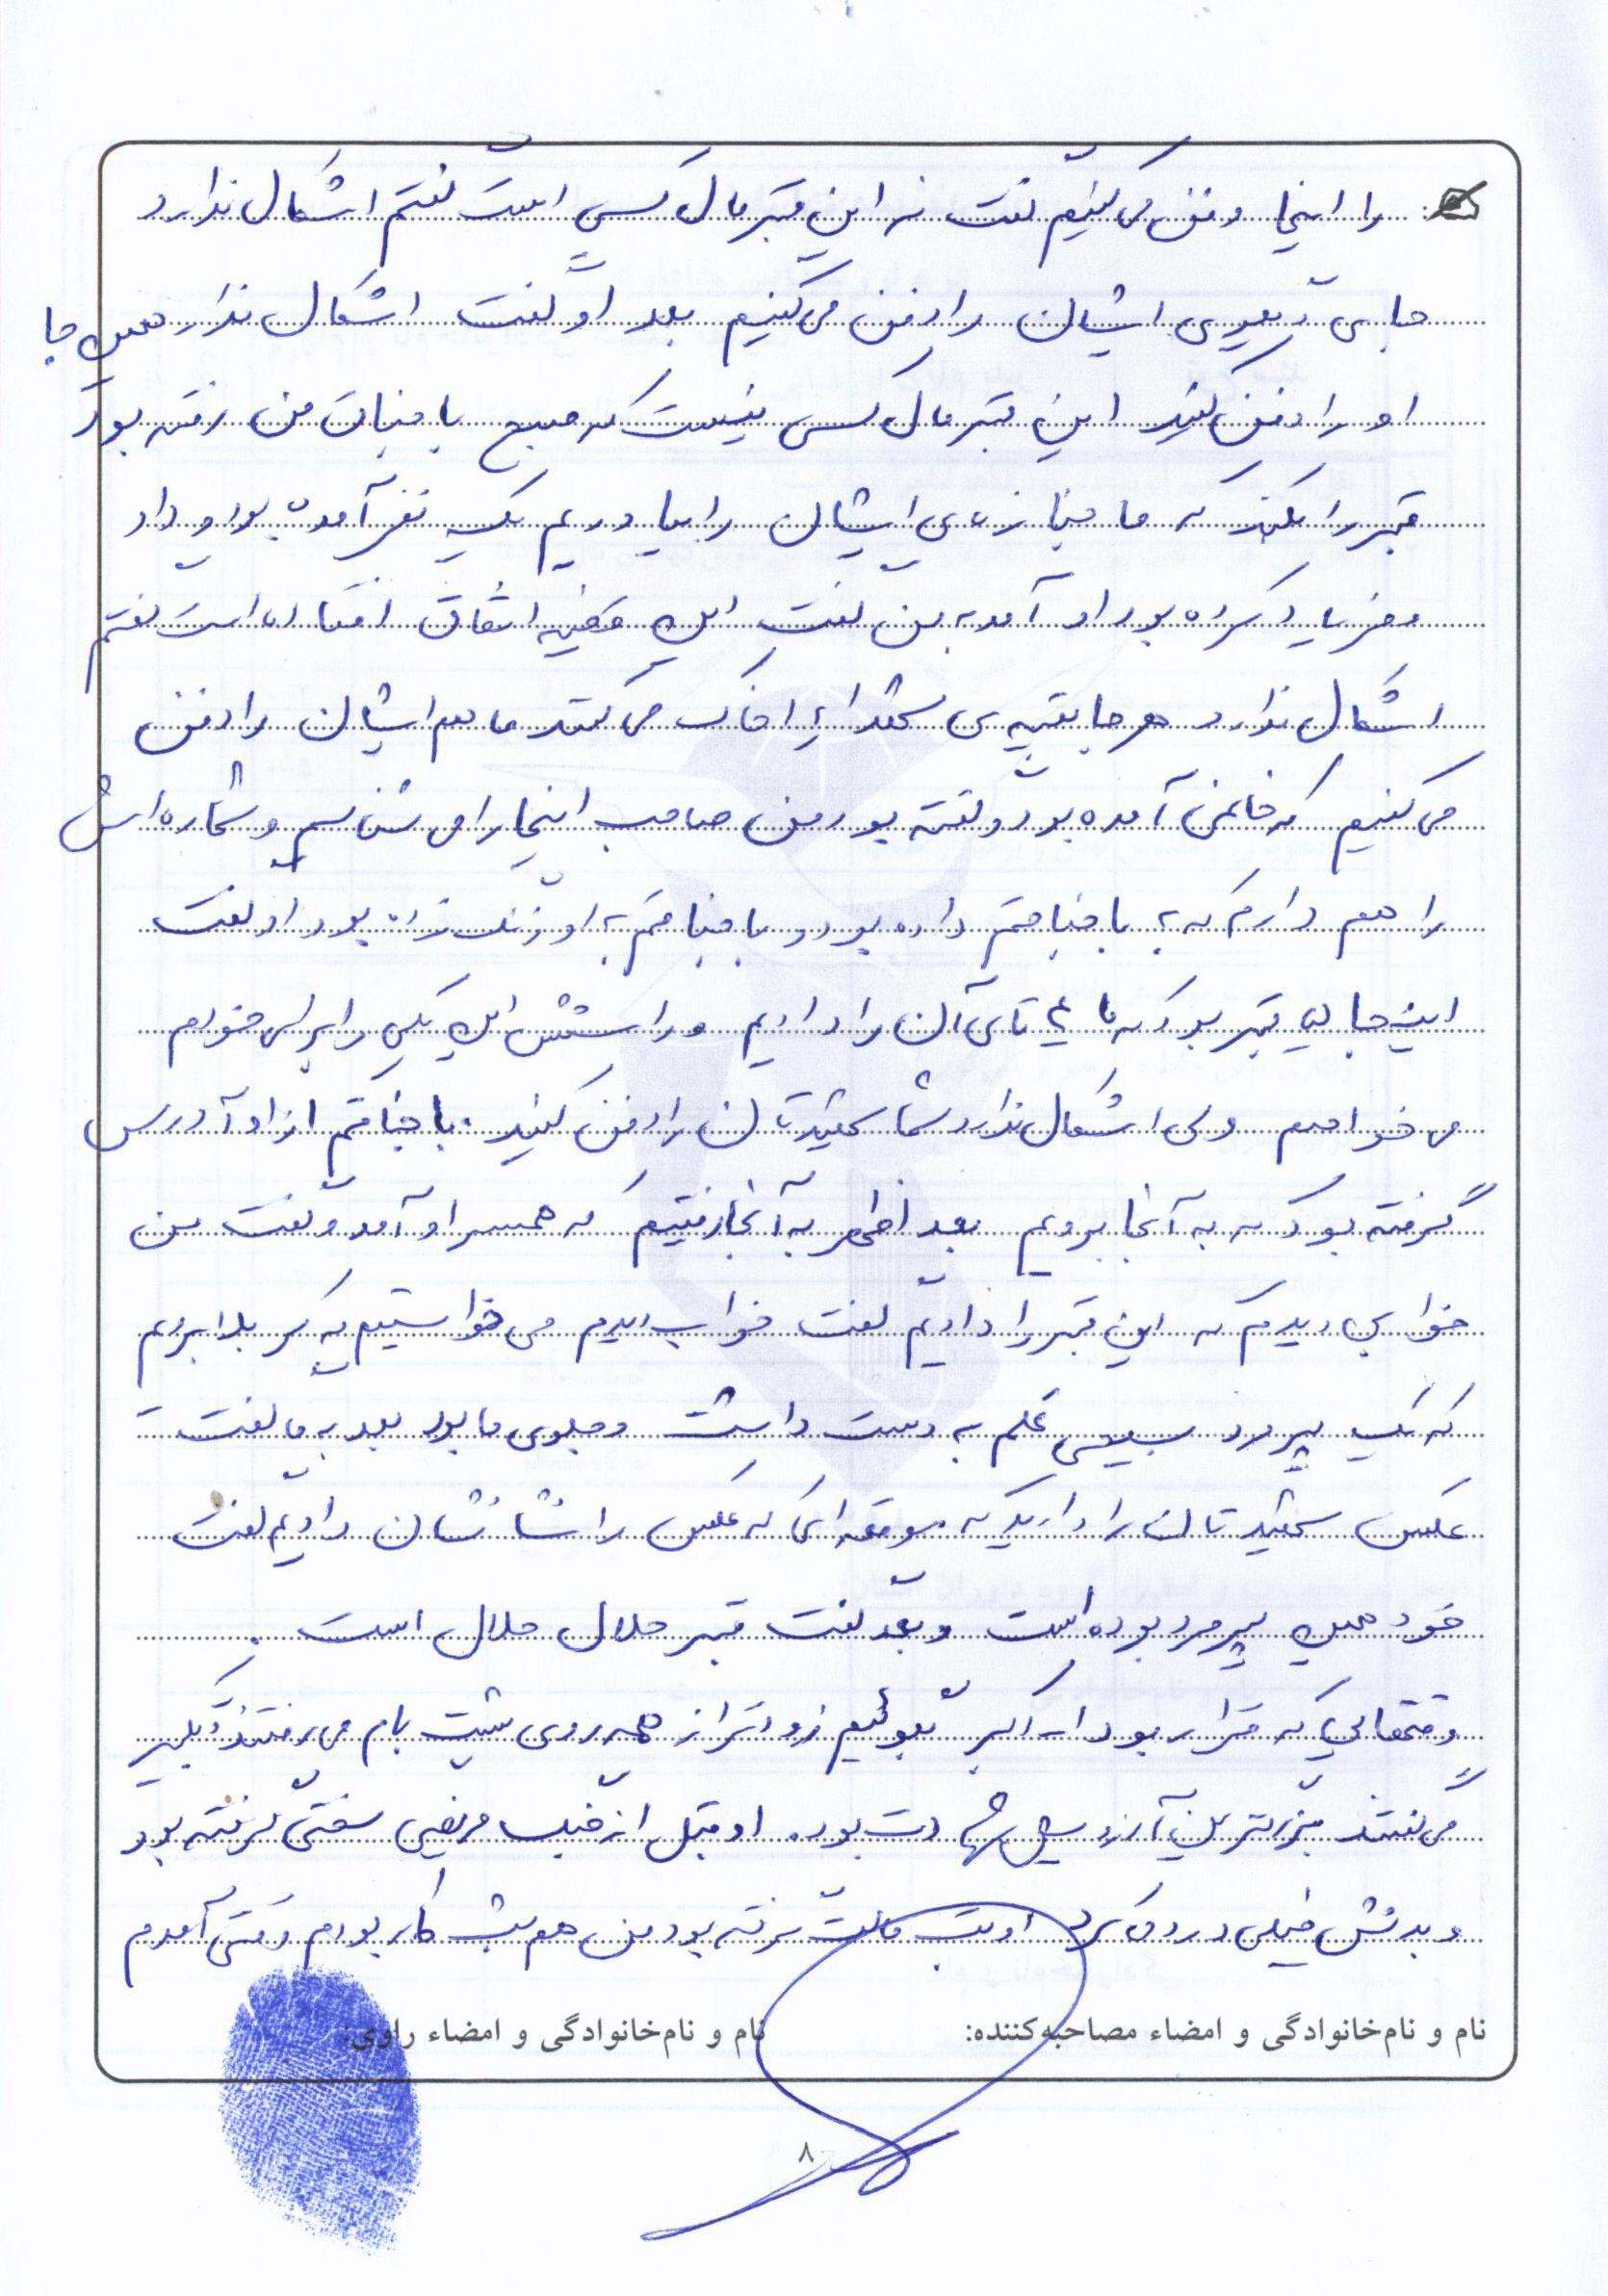 را اینجا دفن می کنیم گفت نه این قبر مال کسی است گفتم اشکال ندارد
جای دیگری ایشان را دفن می کنیم بعد او گفت اشکال ندارد همین جا
او را دفن کنید این قبر مال کسی نیست که صبح با جناق من رفته بود
قبر را بکند که ما جنازه ی ایشان را بیاوریم یک نفر آمده بود و داد
و فریاد کرده بود او آمد به من گفت این قضیه اتفاق افتاده است گفتم
اشکال ندارد هر جا بقیه ی شهدا را خاک می کنند ما هم ایشان را دفن
می کنیم که خانمی آمده بود و گفته بود من صاحب اینجا را می شناسم و شماره اش
را هم دارم که به با جناقم داده بود و با جناقم به او زنگ زده بود او گفت
این جا قبر بود که ما ۴ تای آن را دادیم و راستش این یکی را برای خودم
می خواهم ولی اشکال ندارد شما شهیدتان را دفن کنید. با جناقم از او آدرس
گرفته بود که به آنجا برویم بعد از ظهر به آنجا رفتیم که همسر او آمد و گفت من
خوابی دیدم که این قبر را دادیم گفت خواب دیدم می خواستیم به کربلا برویم
که یک پیرمرد بسیجی علم به دست داشت و جلوی ما بود بعد به ما گفت
عکس شهیدتان را دارید که موقعه ای که عکس را نشانشان دادیم گفت
خود همین پیرمرد بوده است و بعد گفت قبر حلال حلال است.
وقتهایی که قرار بود الله اکبر بگوئیم زودتر از همه روی پشت بام می رفتند و تکبیر
می گفتند بزرگترین آرزویش شهادت بود. او قبل از جنگ مریضی سختی گرفته بود
و بدنش خیلی درد می کرد او گرفته بود من هم کار بودم وقتی آمدم
نام و نام‌خانوادگی و امضاء مصاحبه‌کننده:
نام و نام‌خانوادگی و امضاء راوی:
۸